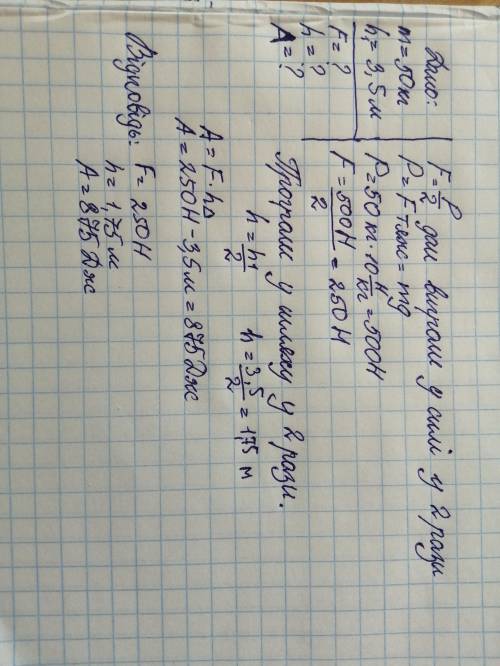 Дано:
m = 50 кг
h₁ = 3,5 м
F = ?
h = ?
A = ?
F = P/2 дає виграш у силі у 2 рази
P = Fтяж = mg
P = 50 кг · 10 Н/кг = 500Н
F = 500Н/2 = 250 Н
Програш у шляху у 2 рази.
h = h1/2 h = 3,5/2 = 1,75 м
A = F · h₁
A = 250Н - 3,5 м = 875 Дж
Відповідь: F = 250Н
h = 1,75 м
A = 875 Дж